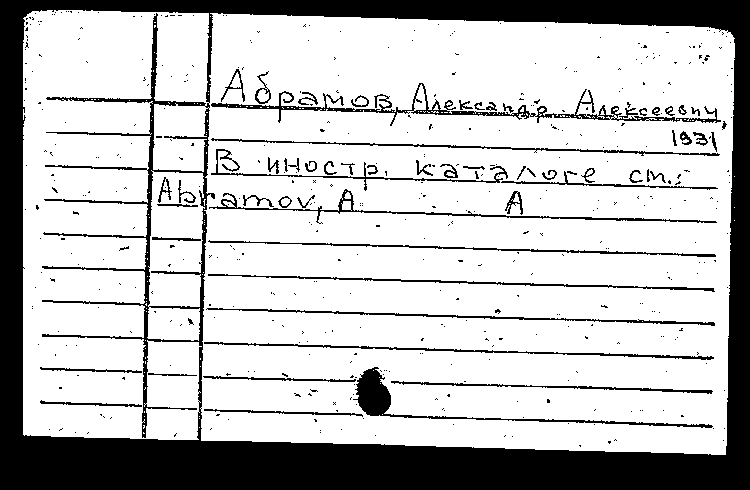 Абрамов, Александр Алексеевич,
1931
В иностр. каталоге см.:
Abramov, A A